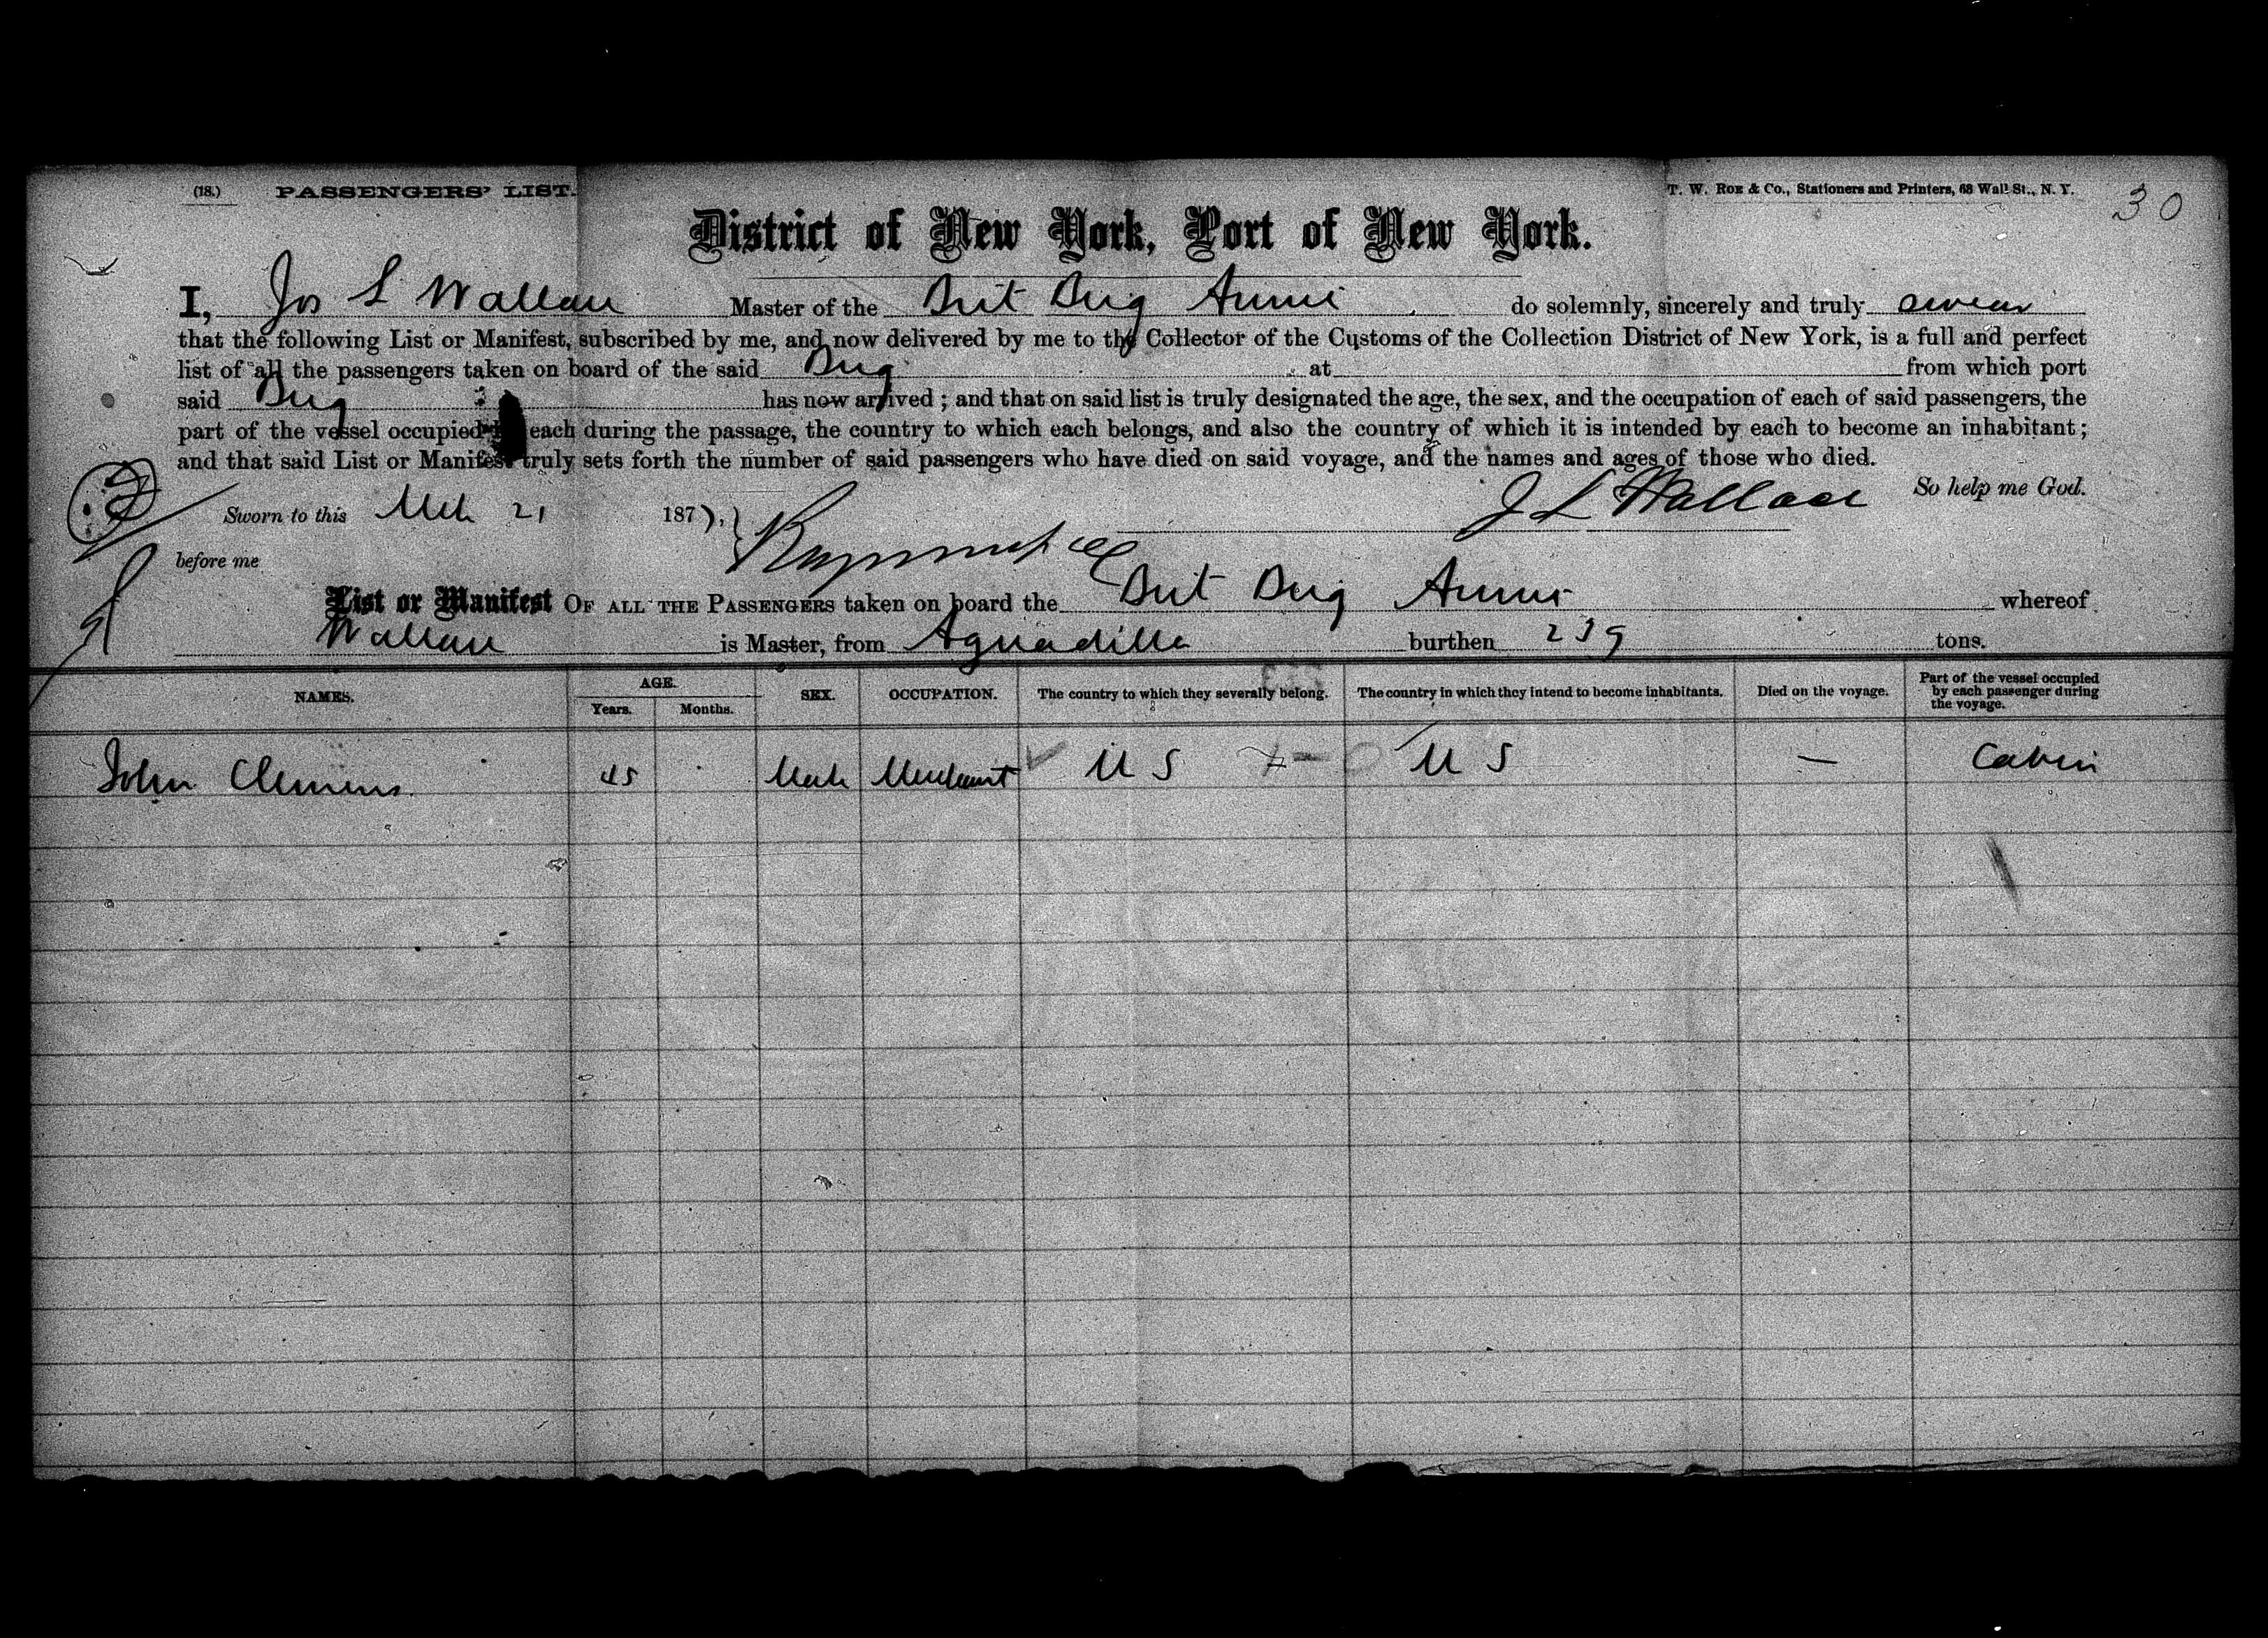 (18.) PASSENGERS' LIST. T. W. Roe & Co., Stationers and Printers, 68 Wall St., N. Y. 30
District of New York, Port of New York.
I, Jos L Wallace Master of the Brit Brig Annie do solemnly, sincerely and truly swear
that the following List or Manifest, subscribed by me, and now delivered by me to the Collector of the Customs of the Collection District of New York, is a full and perfect
list of all the passengers taken on board of the said Brig at from which port
said Brig has now arrived ; and that on said list is truly designated the age, the sex, and the occupation of each of said passengers, the
part of the vessel occupied each during the passage, the country to which each belongs, and also the country of which it is intended by each to become an inhabitant ;
and that said List or Manifest truly sets forth the number of said passengers who have died on said voyage, and the names and ages of those who died.
So help me God.
Sworn to this Mch 21 1877, J L Wallace
before me
List or Manifest OF ALL THE PASSENGERS taken on board the Brit Brig Annie whereof
Wallace is Master, from Aguadilla burthen 239 tons.
NAMES. AGE. Years. Months. SEX. OCCUPATION. The country to which they severally belong. The country in which they intend to become inhabitants. Died on the voyage. Part of the vessel occupied by each passenger during the voyage.
John Clemens 45 Male Merchant U S U S — Cabin